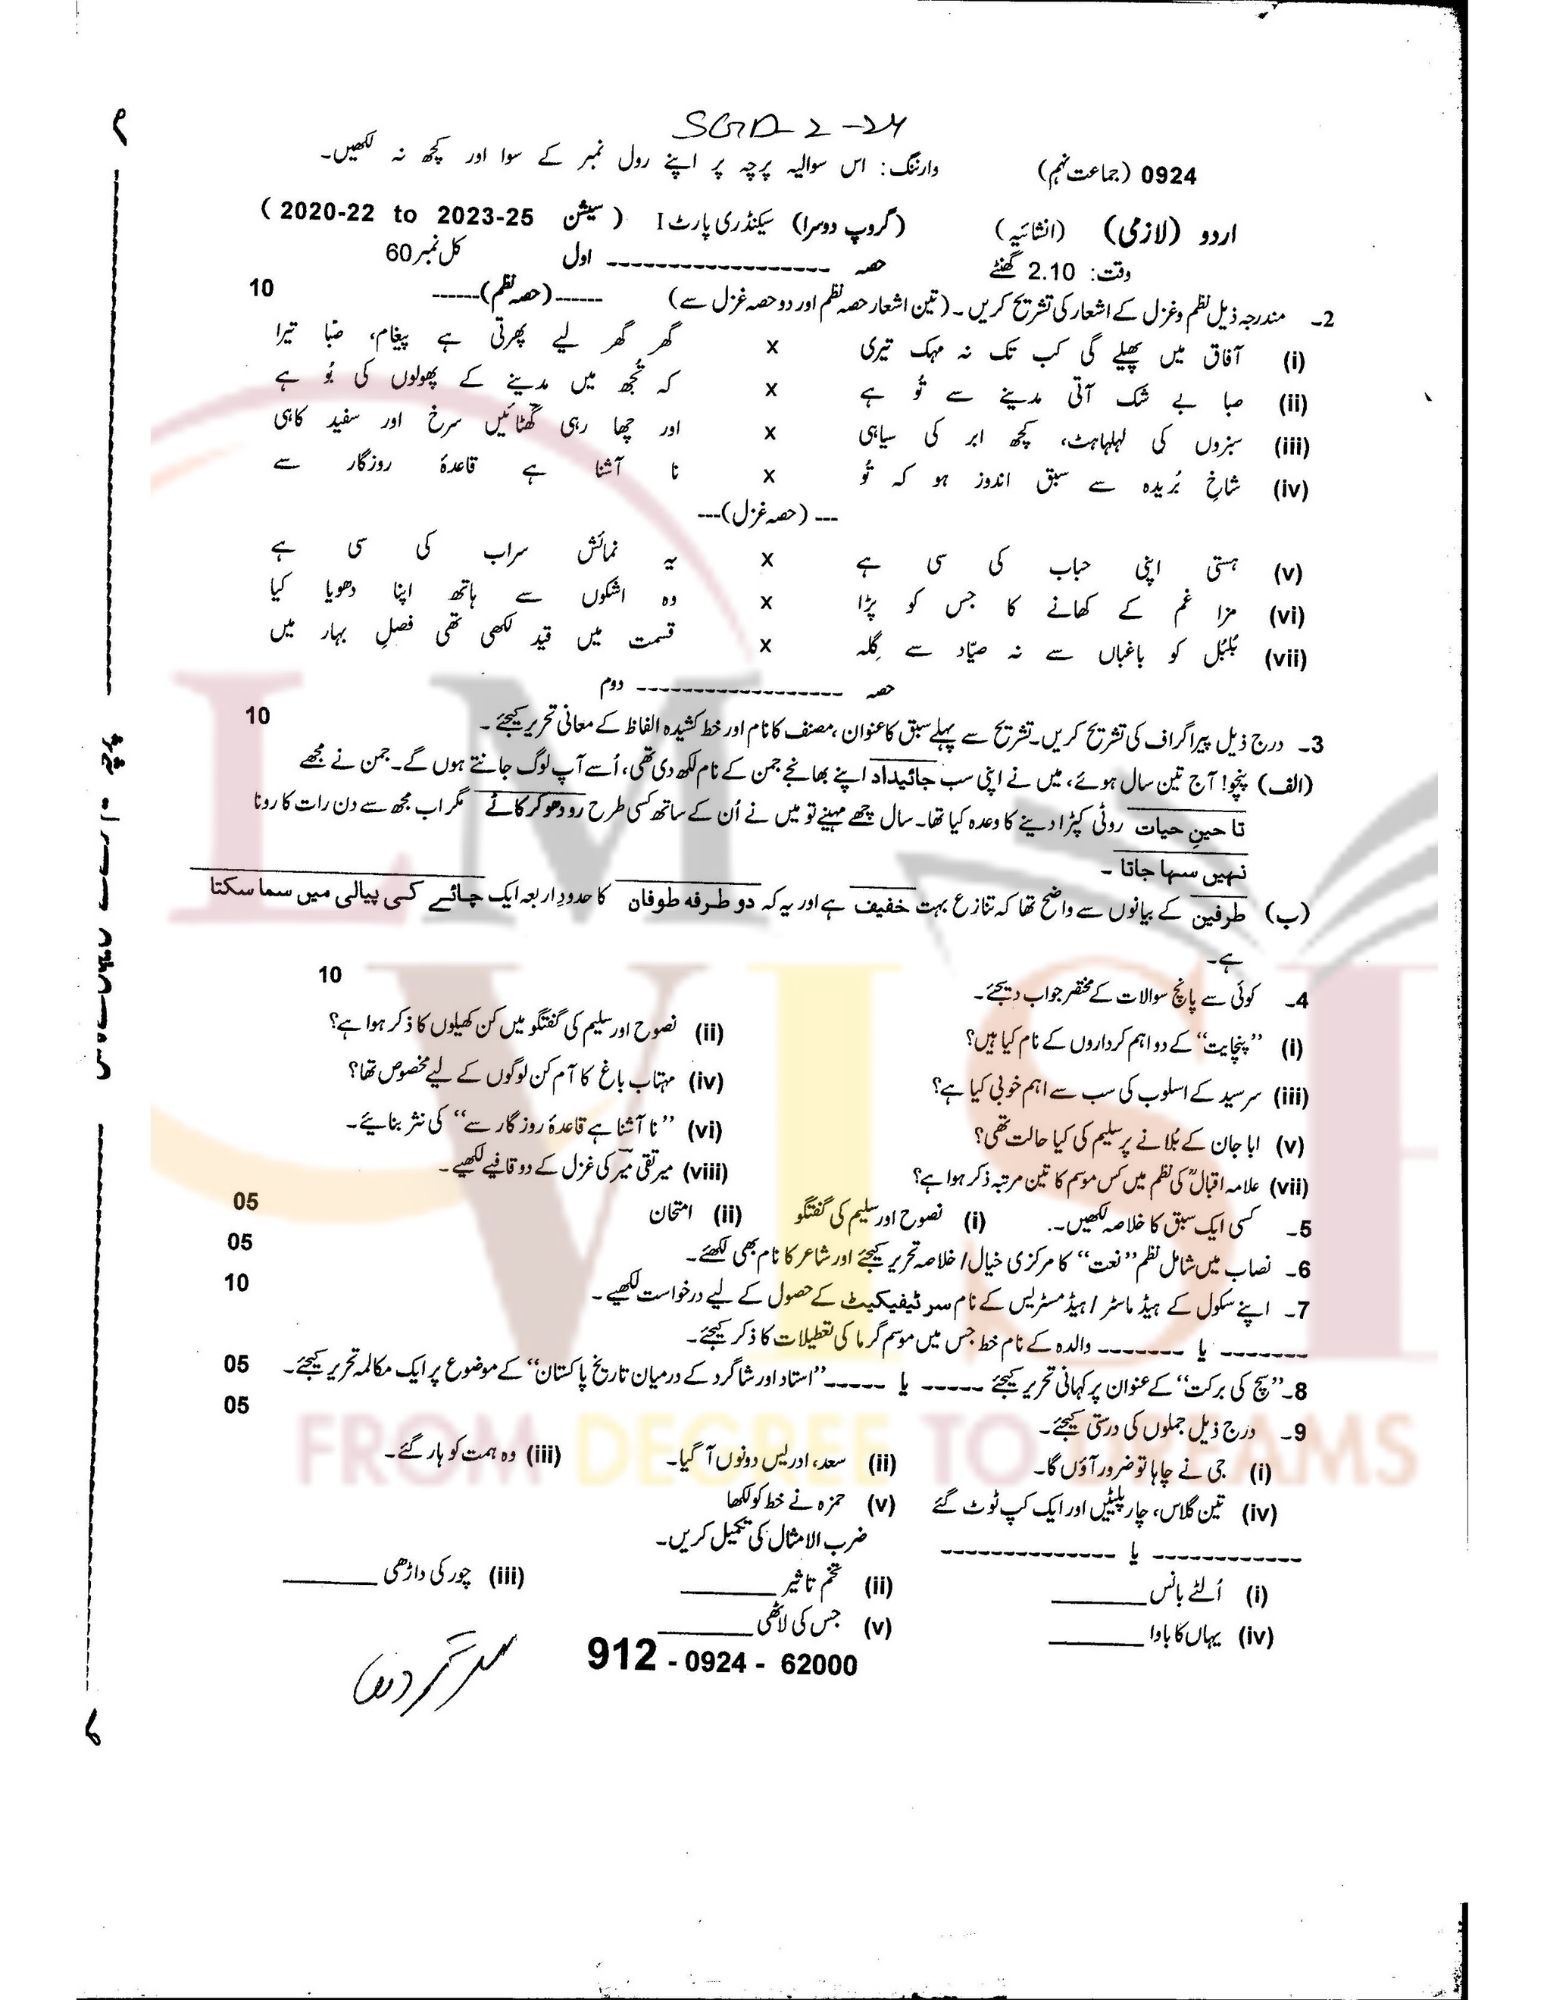 SGD-2-24
0924 (جماعت نہم) وارننگ: اس سوالیہ پرچہ پر اپنے رول نمبر کے سوا اور کچھ نہ لکھیں۔
اردو (لازمی) (انشائیہ) (گروپ دوسرا) سیکنڈری پارٹ I ( سیشن 2020-22 to 2023-25 )
وقت: 2.10 گھنٹے حصہ ------------------ اول کل نمبر 60
2۔ مندرجہ ذیل نظم و غزل کے اشعار کی تشریح کریں۔ (تین اشعار حصہ نظم اور دو حصہ غزل سے) ------(حصہ نظم)------ 10
(i) آفاق میں پھیلے گی کب تک نہ مہک تیری x گھر گھر لیے پھرتی ہے پیغام، صبا تیرا
(ii) صبا بے شک آتی مدینے سے تُو ہے x کہ تُجھ میں مدینے کے پھولوں کی بُو ہے
(iii) سبزوں کی لہلہاہٹ، کچھ ابر کی سیاہی x اور چھا رہی گھٹائیں سرخ اور سفید کاہی
(iv) شاخِ بُریدہ سے سبق اندوز ہو کہ تُو x نا آشنا ہے قاعدۂ روزگار سے
---(حصہ غزل)---
(v) ہستی اپنی حباب کی سی ہے x یہ نمائش سراب کی سی ہے
(vi) مزا غم کے کھانے کا جس کو پڑا x وہ اشکوں سے ہاتھ اپنا دھویا کیا
(vii) بُلبُل کو باغباں سے نہ صیّاد سے گِلہ x قسمت میں قید لکھی تھی فصلِ بہار میں
حصہ ----------------- دوم
3۔ درج ذیل پیراگراف کی تشریح کریں۔ تشریح سے پہلے سبق کا عنوان، مصنف کا نام اور خط کشیدہ الفاظ کے معانی تحریر کیجئے۔ 10
(الف) پنچو! آج تین سال ہوئے، میں نے اپنی سب جائیداد اپنے بھانجے جمن کے نام لکھ دی تھی، اُسے آپ لوگ جانتے ہوں گے۔ جمن نے مجھے
تا حینِ حیات روٹی کپڑا دینے کا وعدہ کیا تھا۔ سال چھے مہینے تو میں نے اُن کے ساتھ کسی طرح رو دھو کر کاٹے مگر اب مجھ سے دن رات کا رونا
نہیں سہا جاتا۔
(ب) طرفین کے بیانوں سے واضح تھا کہ تنازع بہت خفیف ہے اور یہ کہ دو طرفہ طوفان کا حدودِ اربعہ ایک چائے کی پیالی میں سما سکتا
ہے۔
4۔ کوئی سے پانچ سوالات کے مختصر جواب دیجئے۔ 10
(i) ”پنچایت“ کے دو اہم کرداروں کے نام کیا ہیں؟ (ii) نصوح اور سلیم کی گفتگو میں کن کھیلوں کا ذکر ہوا ہے؟
(iii) سرسید کے اسلوب کی سب سے اہم خوبی کیا ہے؟ (iv) مہتاب باغ کا آم کن لوگوں کے لیے مخصوص تھا؟
(v) ابا جان کے بُلانے پر سلیم کی کیا حالت تھی؟ (vi) ”نا آشنا ہے قاعدۂ روزگار سے“ کی نثر بنائیے۔
(vii) علامہ اقبالؒ کی نظم میں کس موسم کا تین مرتبہ ذکر ہوا ہے؟ (viii) میر تقی میر کی غزل کے دو قافیے لکھیے۔
5۔ کسی ایک سبق کا خلاصہ لکھیں۔ (i) نصوح اور سلیم کی گفتگو (ii) امتحان 05
6۔ نصاب میں شامل نظم ”نعت“ کا مرکزی خیال/ خلاصہ تحریر کیجئے اور شاعر کا نام بھی لکھئے۔ 05
7۔ اپنے سکول کے ہیڈ ماسٹر / ہیڈ مسٹریس کے نام سرٹیفیکیٹ کے حصول کے لیے درخواست لکھیے۔ 10
------- یا ------- والدہ کے نام خط جس میں موسم گرما کی تعطیلات کا ذکر کیجئے۔
8۔ ”سچ کی برکت“ کے عنوان پر کہانی تحریر کیجئے ----- یا ----- ”استاد اور شاگرد کے درمیان تاریخ پاکستان“ کے موضوع پر ایک مکالمہ تحریر کیجئے۔ 05
9۔ درج ذیل جملوں کی درستی کیجئے۔ 05
(i) جی نے چاہا تو ضرور آؤں گا۔ (ii) سعد، ادریس دونوں آ گیا۔ (iii) وہ ہمت کو ہار گئے۔
(iv) تین گلاس، چار پلیٹیں اور ایک کپ ٹوٹ گئے (v) حمزہ نے خط کو لکھا
------------ یا -------------- ضرب الامثال کی تکمیل کریں۔
(i) اُلٹے بانس ________ (ii) تخم تاثیر ________ (iii) چور کی داڑھی ________
(iv) یہاں کا باوا ________ (v) جس کی لاٹھی ________
912 - 0924 - 62000
LM
VISI
FROM DEGREE TO DREAMS